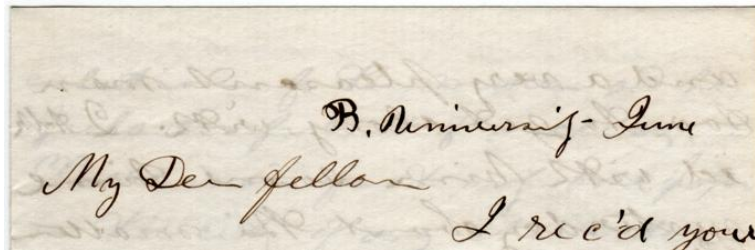 B. University - June
My Dear fellow
I rec'd your